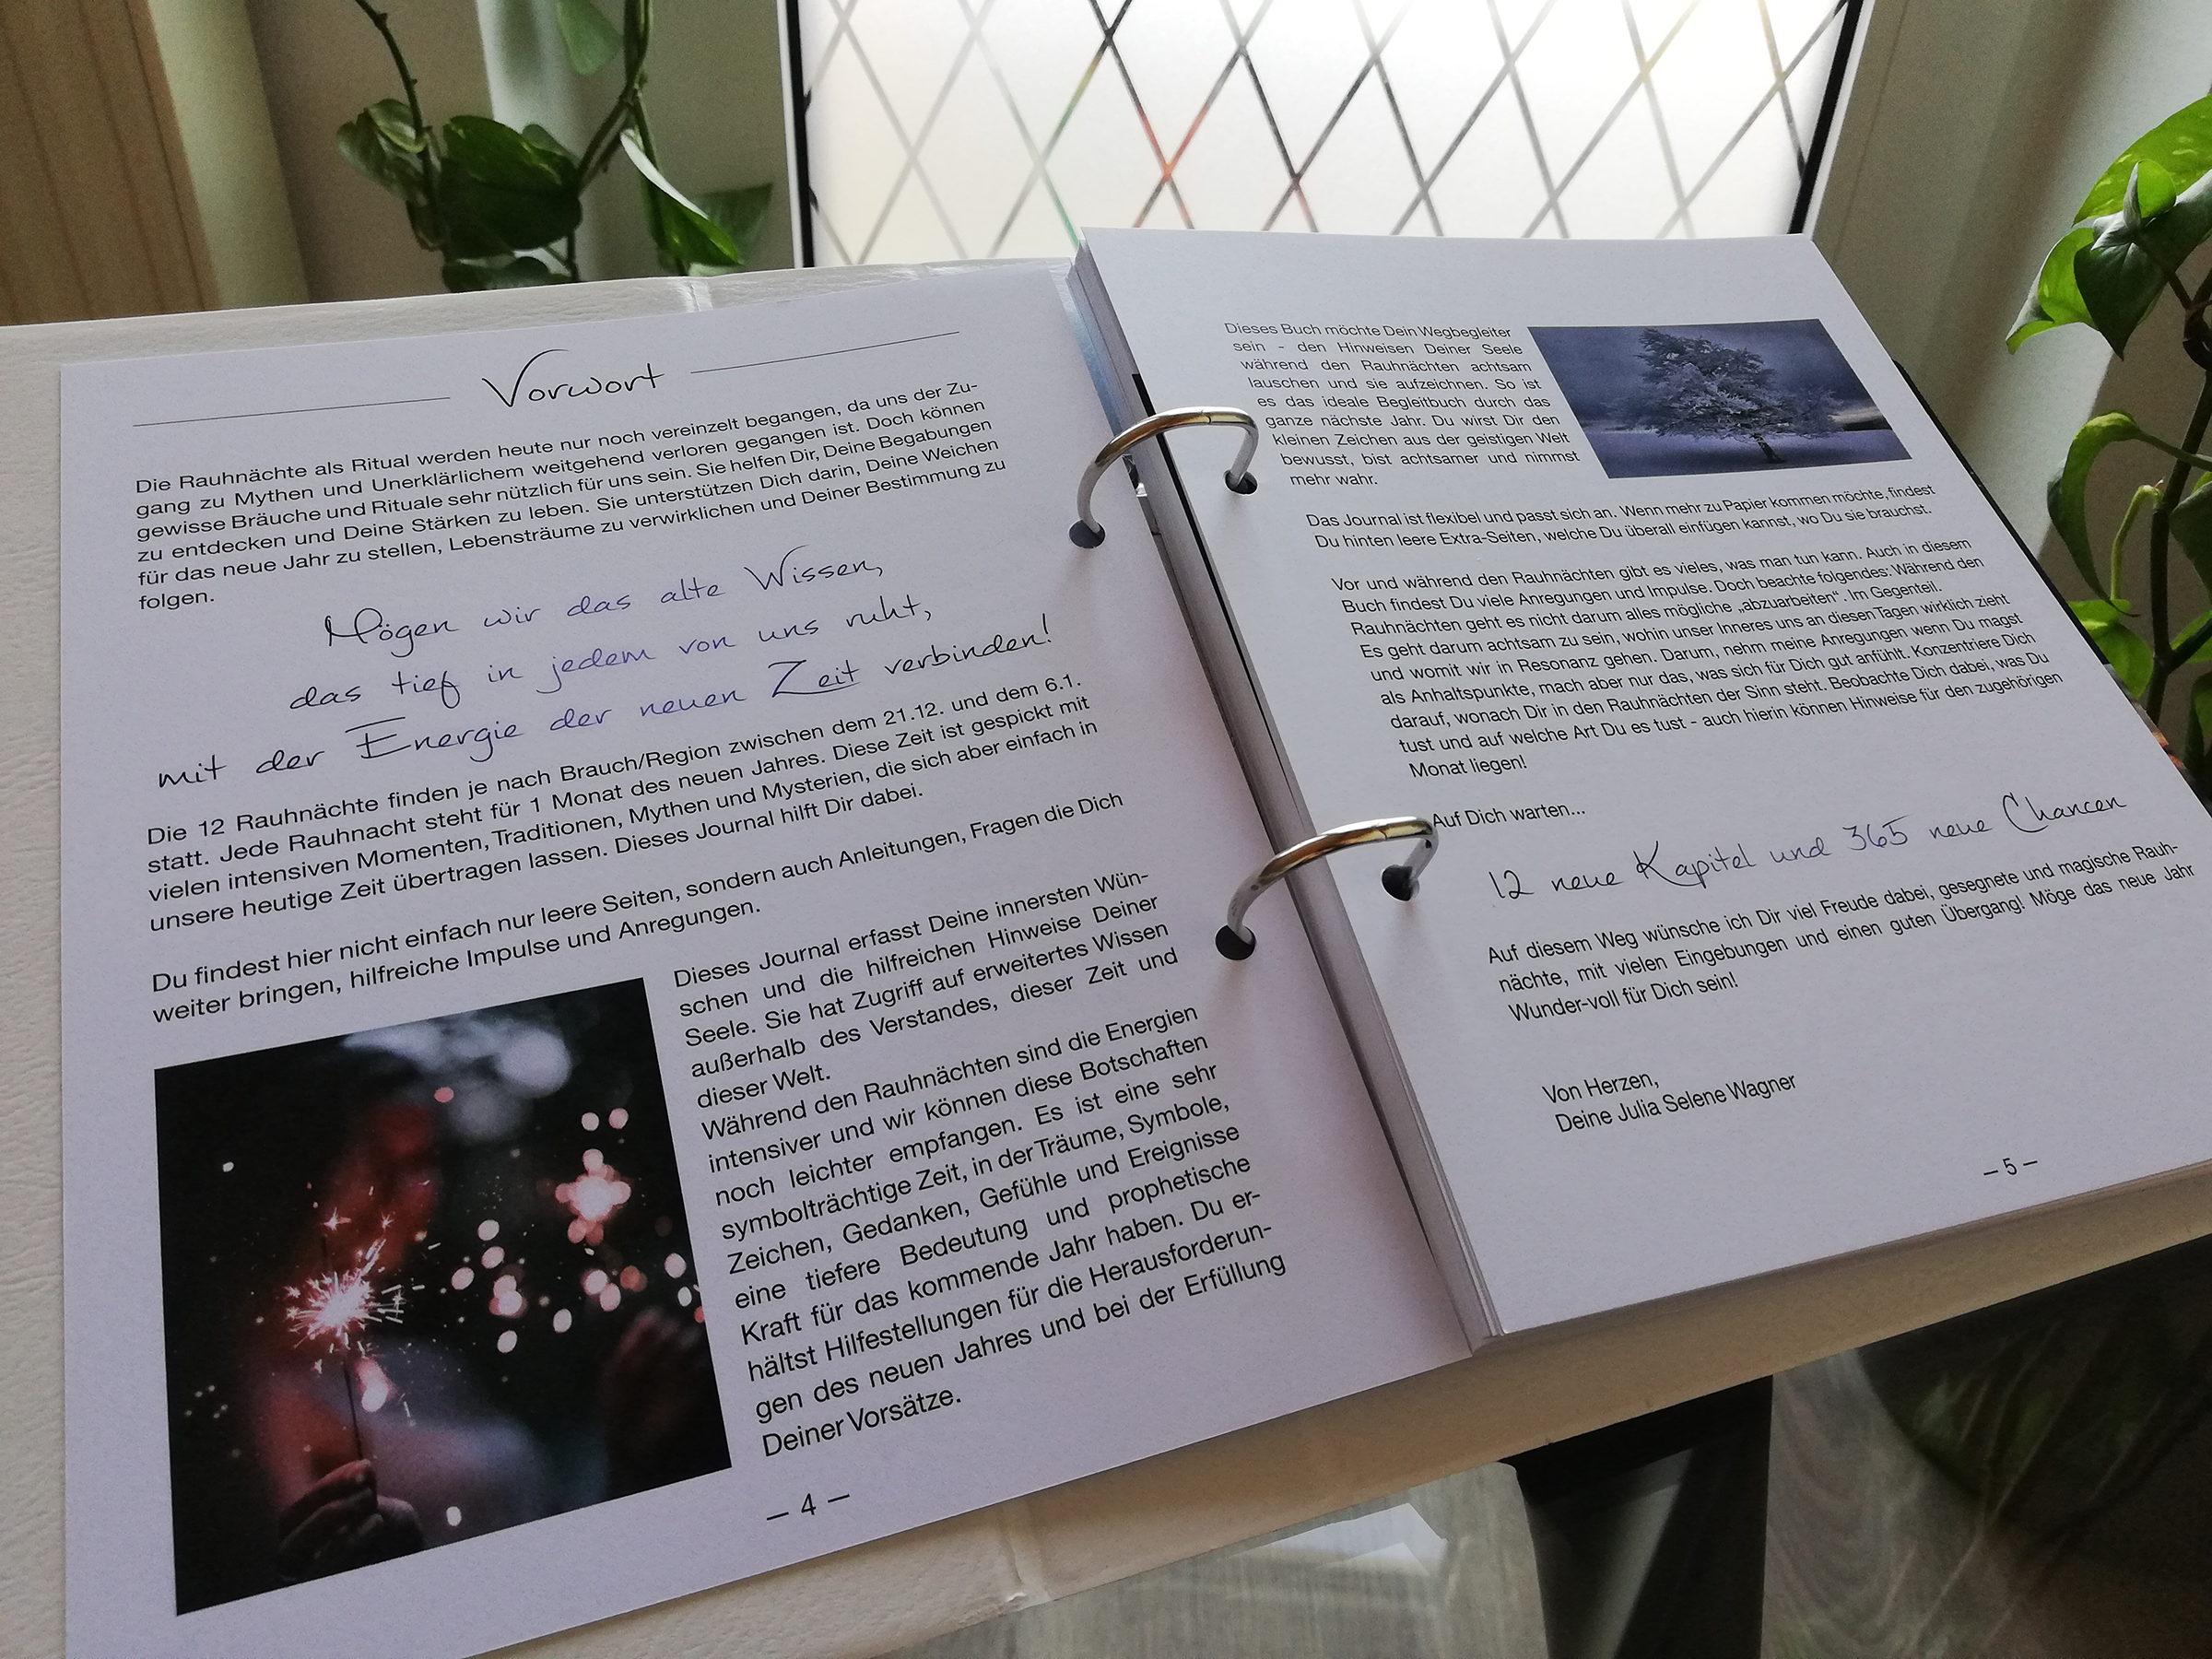 Vorwort
Die Rauhnächte als Ritual werden heute nur noch vereinzelt begangen, da uns der Zu-
gang zu Mythen und Unerklärlichem weitgehend verloren gegangen ist. Doch können
gewisse Bräuche und Rituale sehr nützlich für uns sein. Sie helfen Dir, Deine Begabungen
zu entdecken und Deine Stärken zu leben. Sie unterstützen Dich darin, Deine Weichen
für das neue Jahr zu stellen, Lebensträume zu verwirklichen und Deiner Bestimmung zu
folgen.
Mögen wir das alte Wissen,
das tief in jedem von uns ruht,
mit der Energie der neuen Zeit verbinden!
Die 12 Rauhnächte finden je nach Brauch/Region zwischen dem 21.12. und dem 6.1.
statt. Jede Rauhnacht steht für 1 Monat des neuen Jahres. Diese Zeit ist gespickt mit
vielen intensiven Momenten, Traditionen, Mythen und Mysterien, die sich aber einfach in
unsere heutige Zeit übertragen lassen. Dieses Journal hilft Dir dabei.
Du findest hier nicht einfach nur leere Seiten, sondern auch Anleitungen, Fragen die Dich
weiter bringen, hilfreiche Impulse und Anregungen.
Dieses Journal erfasst Deine innersten Wün-
schen und die hilfreichen Hinweise Deiner
Seele. Sie hat Zugriff auf erweitertes Wissen
außerhalb des Verstandes, dieser Zeit und
dieser Welt.
Während den Rauhnächten sind die Energien
intensiver und wir können diese Botschaften
noch leichter empfangen. Es ist eine sehr
symbolträchtige Zeit, in der Träume, Symbole,
Zeichen, Gedanken, Gefühle und Ereignisse
eine tiefere Bedeutung und prophetische
Kraft für das kommende Jahr haben. Du er-
hältst Hilfestellungen für die Herausforderun-
gen des neuen Jahres und bei der Erfüllung
Deiner Vorsätze.
– 4 –
Dieses Buch möchte Dein Wegbegleiter
sein - den Hinweisen Deiner Seele
während den Rauhnächten achtsam
lauschen und sie aufzeichnen. So ist
es das ideale Begleitbuch durch das
ganze nächste Jahr. Du wirst Dir den
kleinen Zeichen aus der geistigen Welt
bewusst, bist achtsamer und nimmst
mehr wahr.
Das Journal ist flexibel und passt sich an. Wenn mehr zu Papier kommen möchte, findest
Du hinten leere Extra-Seiten, welche Du überall einfügen kannst, wo Du sie brauchst.
Vor und während den Rauhnächten gibt es vieles, was man tun kann. Auch in diesem
Buch findest Du viele Anregungen und Impulse. Doch beachte folgendes: Während den
Rauhnächten geht es nicht darum alles mögliche „abzuarbeiten“. Im Gegenteil.
Es geht darum achtsam zu sein, wohin unser Inneres uns an diesen Tagen wirklich zieht
und womit wir in Resonanz gehen. Darum, nehm meine Anregungen wenn Du magst
als Anhaltspunkte, mach aber nur das, was sich für Dich gut anfühlt. Konzentriere Dich
darauf, wonach Dir in den Rauhnächten der Sinn steht. Beobachte Dich dabei, was Du
tust und auf welche Art Du es tust - auch hierin können Hinweise für den zugehörigen
Monat liegen!
Auf Dich warten...
12 neue Kapitel und 365 neue Chancen
Auf diesem Weg wünsche ich Dir viel Freude dabei, gesegnete und magische Rauh-
nächte, mit vielen Eingebungen und einen guten Übergang! Möge das neue Jahr
Wunder-voll für Dich sein!
Von Herzen,
Deine Julia Selene Wagner
– 5 –